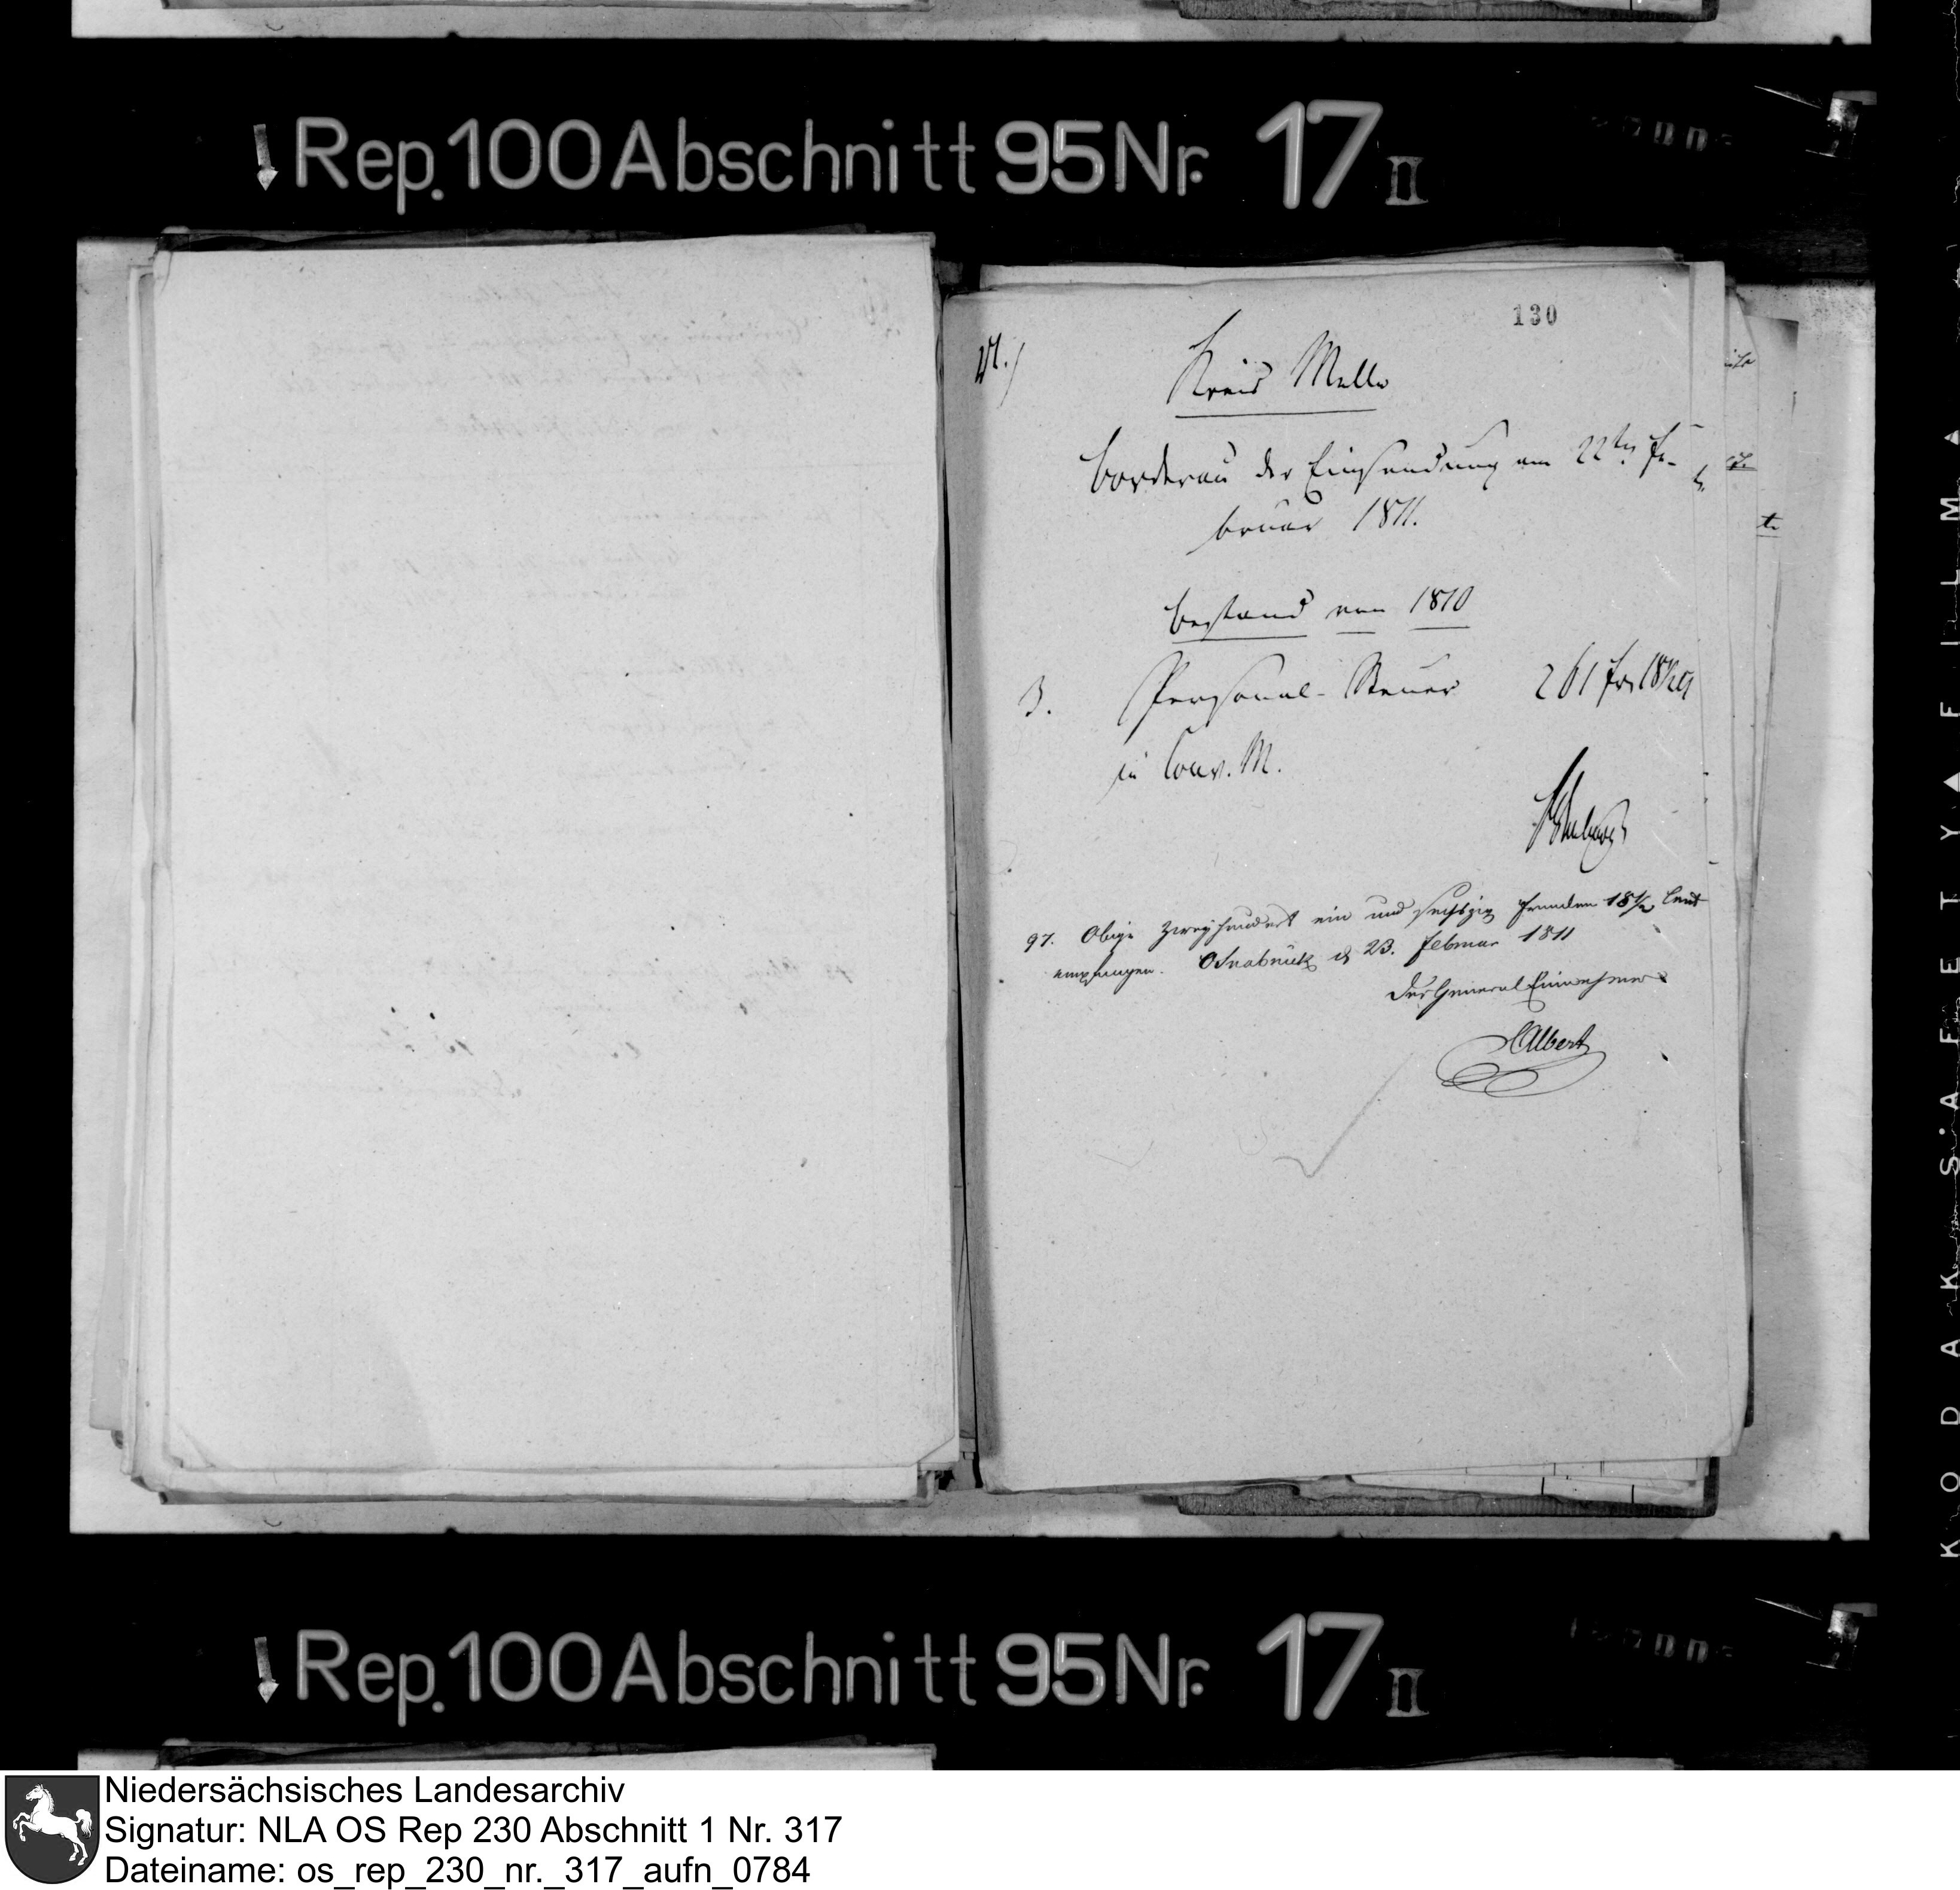 Rep. 100 Abschnitt 95 Nr. 17 II
130
Kreis Melle
Borderau der Einsendung am 22ten Fe-
bruar 1811.
Bestand von 1810
3. Personal-Steuer 261 frs 18½ Ct
in Conv. M.
97. Obige zweyhundert ein und sechszig Franken 18½ Cent
empfangen. Osnabrück d 23. Februar 1811
Der General Einnehmer
Albert
Rep. 100 Abschnitt 95 Nr. 17 II
KODAK SAFETY FILM
Niedersächsisches Landesarchiv
Signatur: NLA OS Rep 230 Abschnitt 1 Nr. 317
Dateiname: os_rep_230_nr._317_aufn_0784